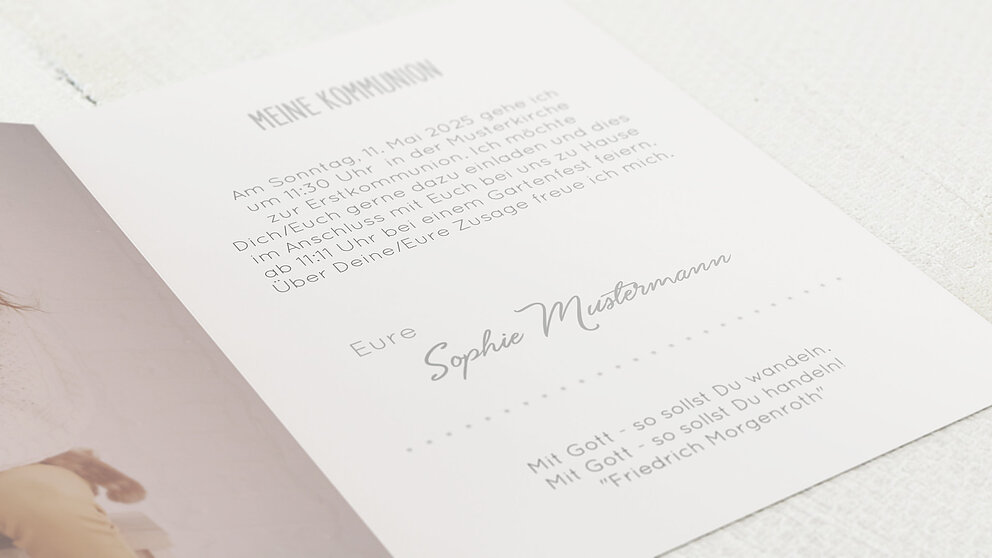 MEINE KOMMUNION
Am Sonntag, 11. Mai 2025 gehe ich
um 11:30 Uhr in der Musterkirche
zur Erstkommunion. Ich möchte
Dich/Euch gerne dazu einladen und dies
im Anschluss mit Euch bei uns zu Hause
ab 11:11 Uhr bei einem Gartenfest feiern.
Über Deine/Eure Zusage freue ich mich.
Eure
Sophie Mustermann
Mit Gott - so sollst Du wandeln.
Mit Gott - so sollst Du handeln!
"Friedrich Morgenroth"